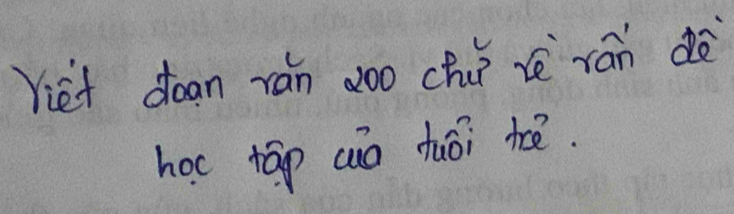 Viết đoạn văn 200 chữ về vấn đề
học tập của tuổi trẻ.